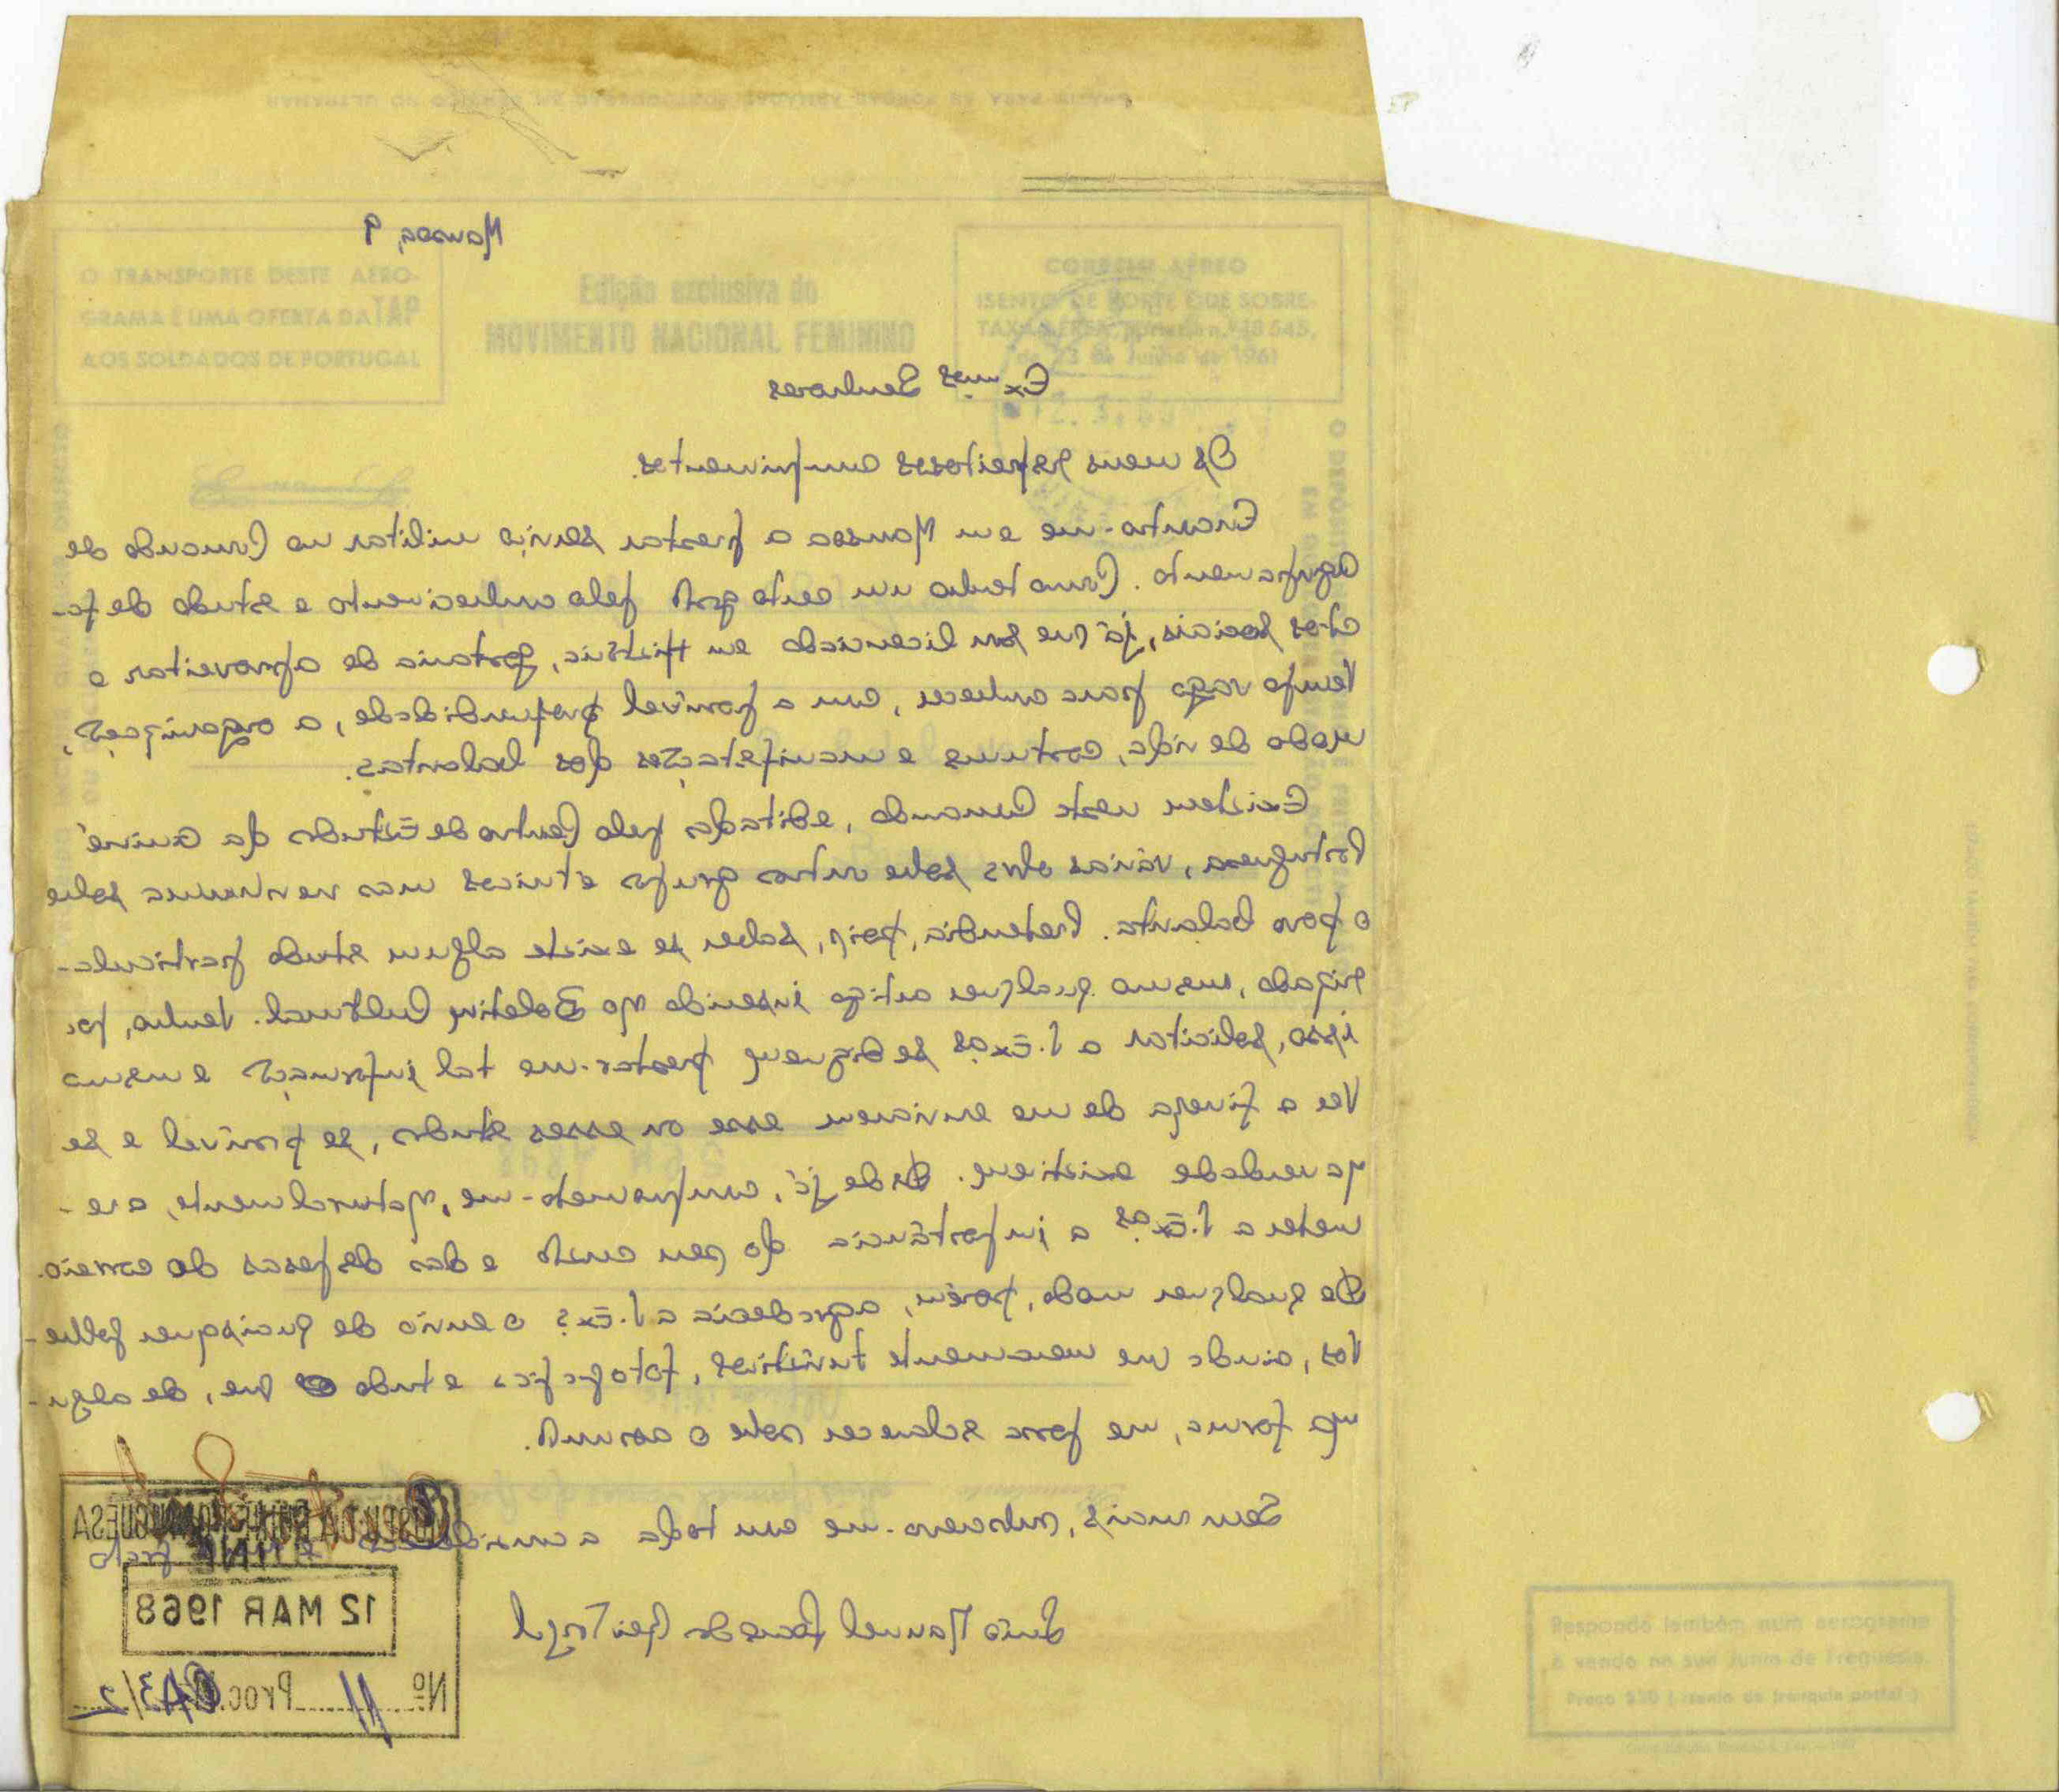 Mansoa, 9
O TRANSPORTE DESTE AERO-
GRAMA É UMA OFERTA DA TAP
AOS SOLDADOS DE PORTUGAL
Edição exclusiva do
MOVIMENTO NACIONAL FEMININO
CORREIO AÉREO
ISENTO DE PORTE E DE SOBRE-
TAXA AÉREA
de 23 de Junho de 1961
Ex.mos Senhores
Os meus respeitosos cumprimentos.
Encontro-me em Mansoa a prestar serviço militar no Comando de
Agrupamento. Como tenho um certo gosto pelo conhecimento e estudo de fa-
ctos sociais, já que sou licenciado em História, gostaria de aproveitar o
tempo vago para conhecer, com a possível profundidade, a organização,
modo de vida, costumes e manifestações dos balantas.
Existem neste Comando, editadas pelo Centro de Estudos da Guiné
Portuguesa, várias obras sobre outros grupos étnicos mas nenhuma sobre
o povo balanta. Pretendia, pois, saber se existe algum estudo particula-
rizado, mesmo qualquer artigo inserido no Boletim Cultural. Venho, por
isso, solicitar a V. Ex.as se dignem prestar-me tal informação e mesmo
ter a fineza de me enviarem esse ou esses estudos, se possível e se
na verdade existirem. Desde já, comprometo-me, naturalmente, a re-
meter a V. Ex.as a importância do seu custo e das despesas do correio.
De qualquer modo, porém, agradecia a V. Ex.as o envio de quaisquer folhe-
tos, ainda que meramente turísticos, fotografias e tudo que, de algu-
ma forma, me possa esclarecer sobre o assunto.
Sem mais, subscrevo-me com toda a consideração e muito grato
Manuel
MUSEU DA GUINÉ PORTUGUESA
12 MAR 1968
Nº 11 Proc.
Responda também num aerograma
à venda na sua Junta de Freguesia.
Preço $30 (isento de franquia postal)